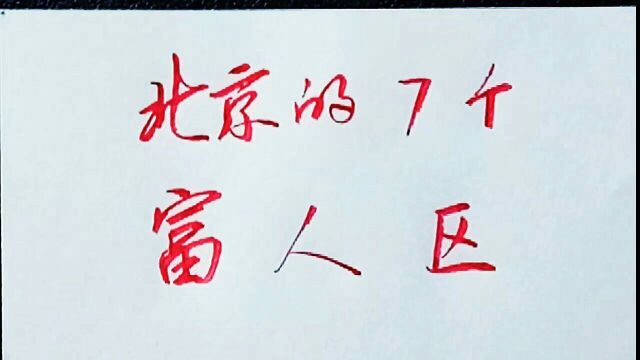 北京的7个
富人区